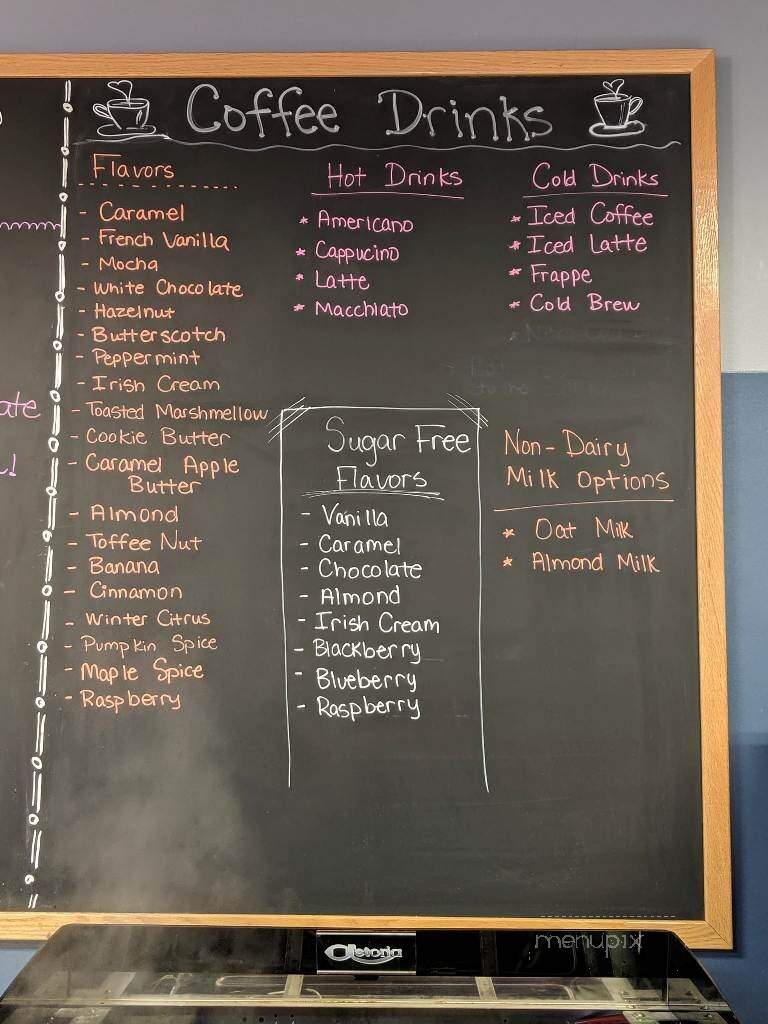 Coffee Drinks
Flavors
- Caramel
- French Vanilla
- Mocha
- White Chocolate
- Hazelnut
- Butterscotch
- Peppermint
- Irish Cream
- Toasted Marshmellow
- Cookie Butter
- Caramel Apple
Butter
- Almond
- Toffee Nut
- Banana
- Cinnamon
- Winter Citrus
- Pumpkin Spice
- Maple Spice
- Raspberry
Hot Drinks
* Americano
* Cappucino
* Latte
* Macchiato
Cold Drinks
* Iced Coffee
* Iced Latte
* Frappe
* Cold Brew
Sugar Free
Flavors
- Vanilla
- Caramel
- Chocolate
- Almond
- Irish Cream
- Blackberry
- Blueberry
- Raspberry
Non-Dairy
Milk Options
* Oat Milk
* Almond Milk
ate
menupix